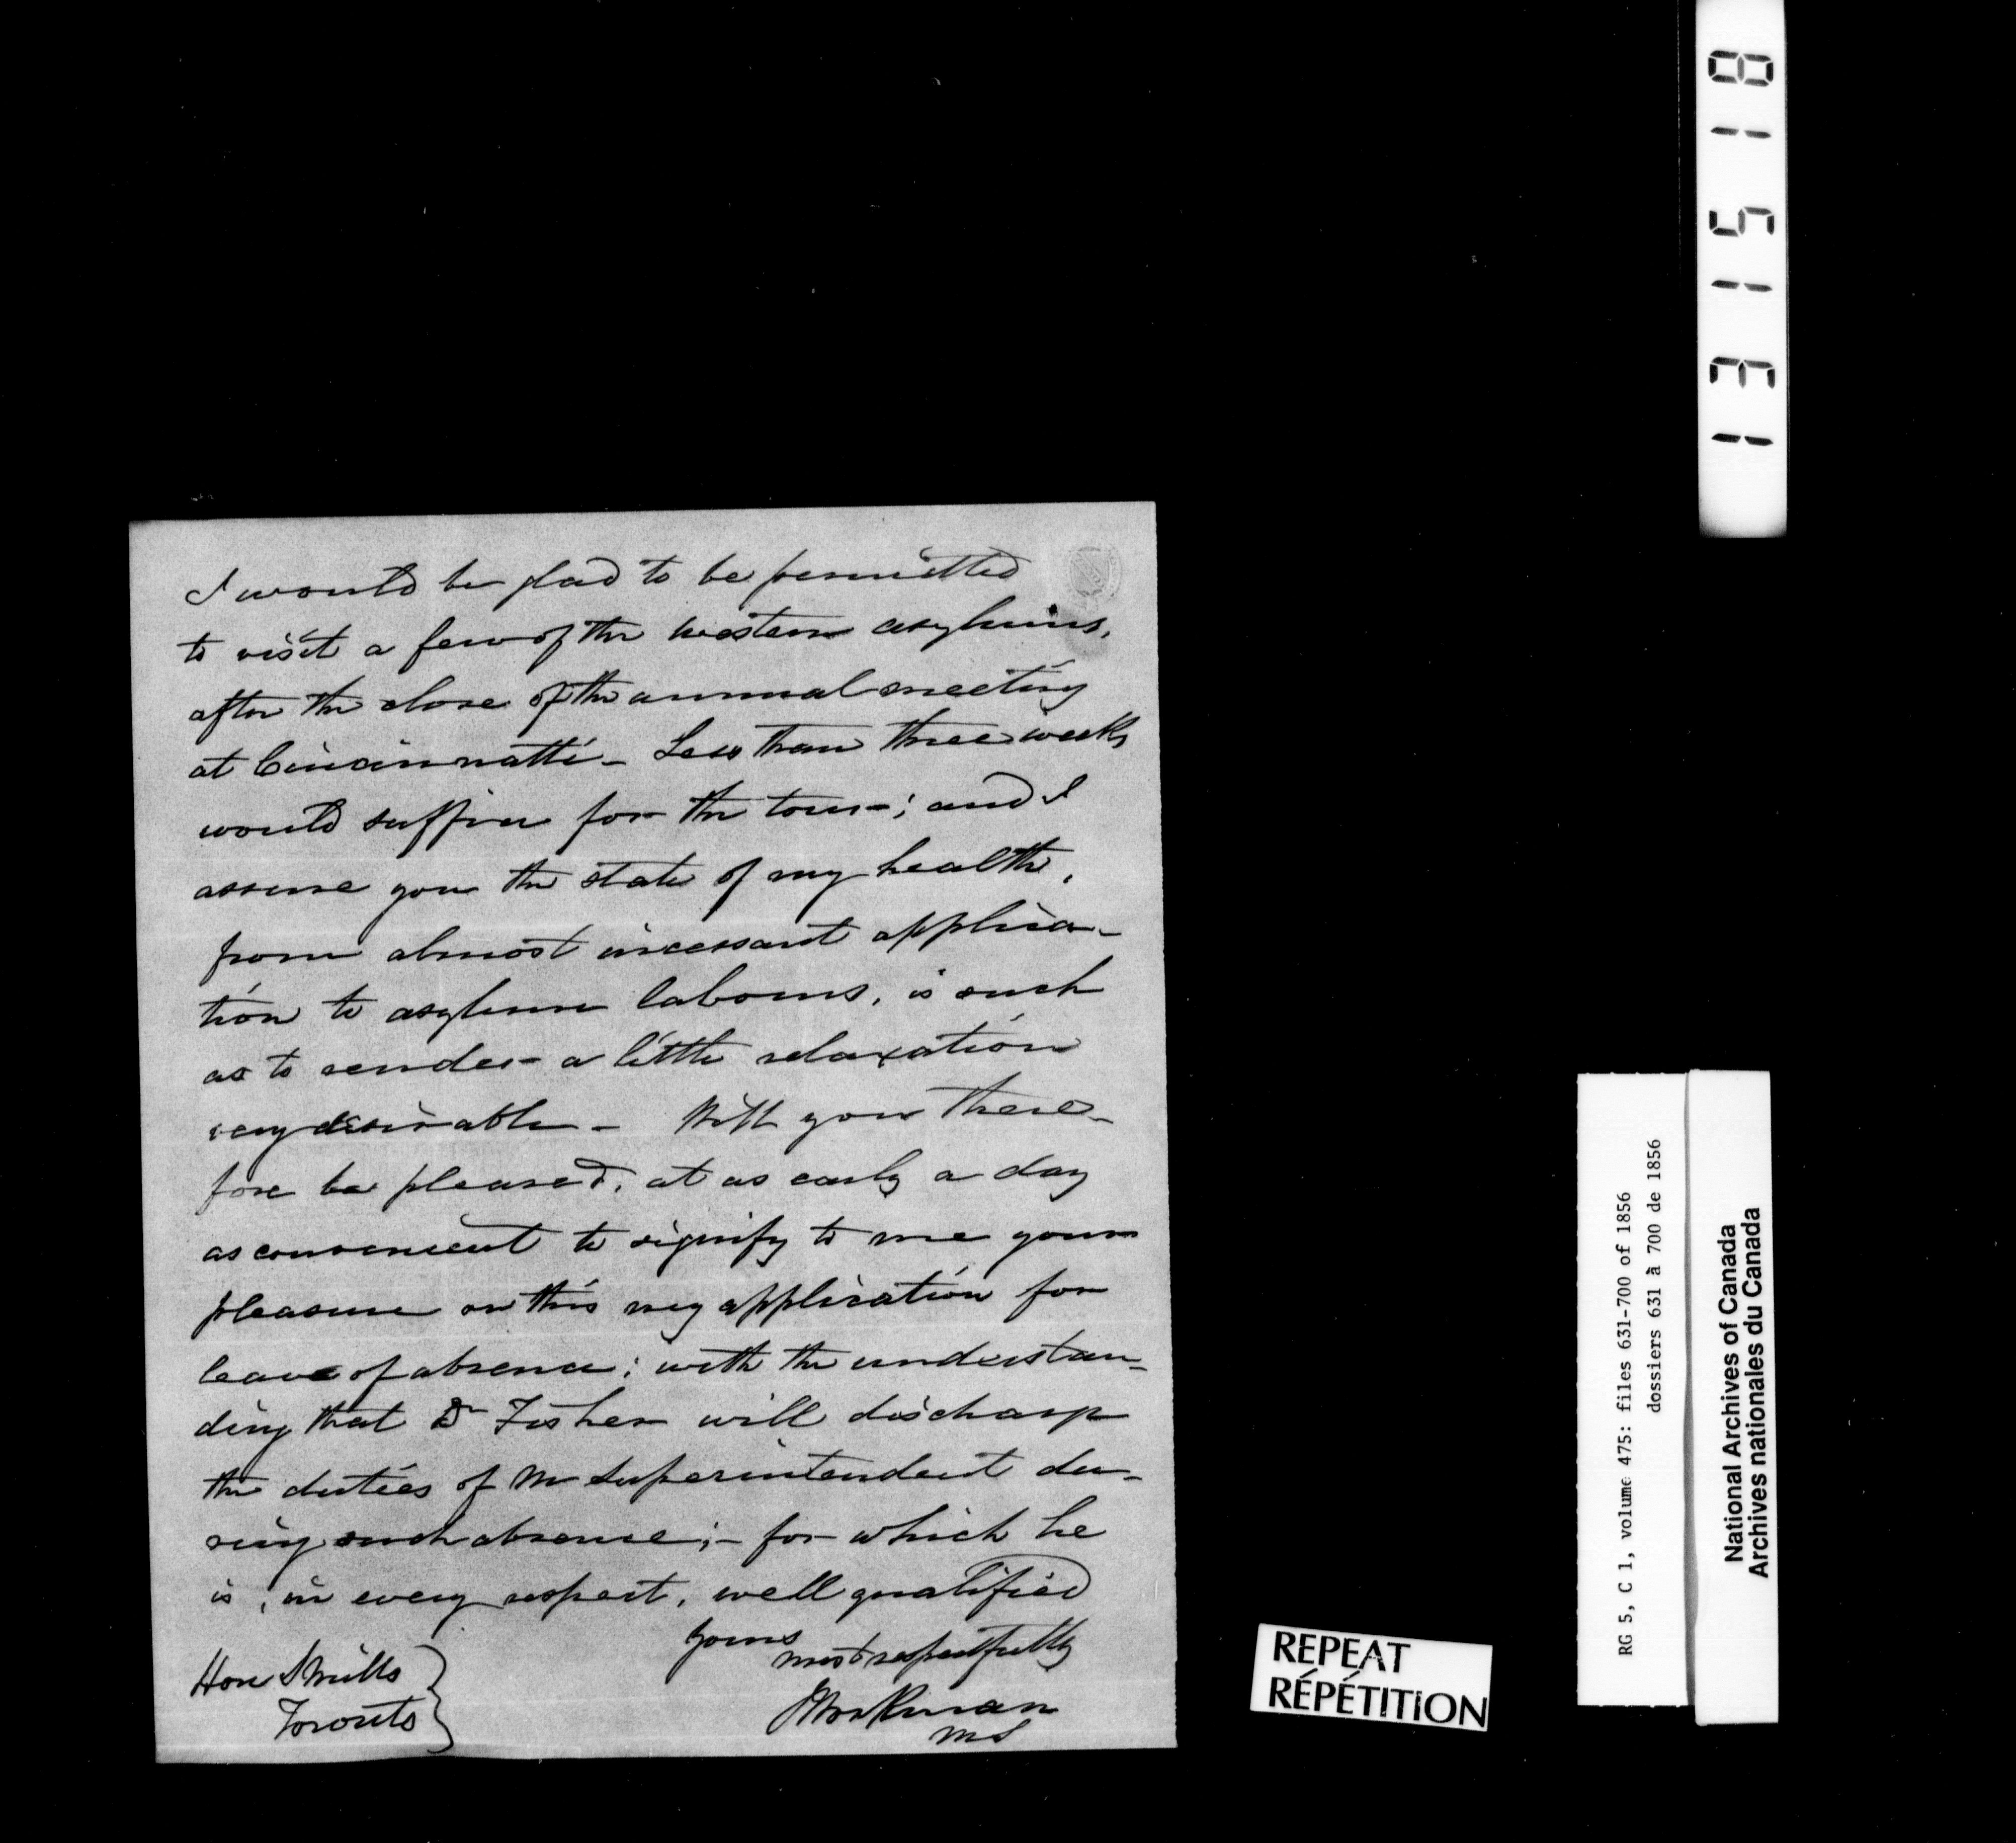 I would be glad to be permitted
to visit a few of the western asylums,
after the close of the annual meeting
at Cincinnatti – Less than three weeks
would suffice for the tour; and I
assure you the state of my health,
from almost incessant applica-
tion to asylum labours, is such
as to render a little relaxation
very desirable – Will you there-
fore be pleased, at as early a day
as convenient to signify to me your
pleasure on this my application for
leave of absence; with the understan-
ding that Dr Fisher will discharge
the duties of M Superintendent du-
ring such absence; – for which he
is, in every respect, well qualified
Yours
most respectfully
J Workman
M S
Hon S Mills
Toronto
13 15 18
RG 5, C 1, volume 475: files 631-700 of 1856
dossiers 631 à 700 de 1856
National Archives of Canada
Archives nationales du Canada
REPEAT
RÉPÉTITION